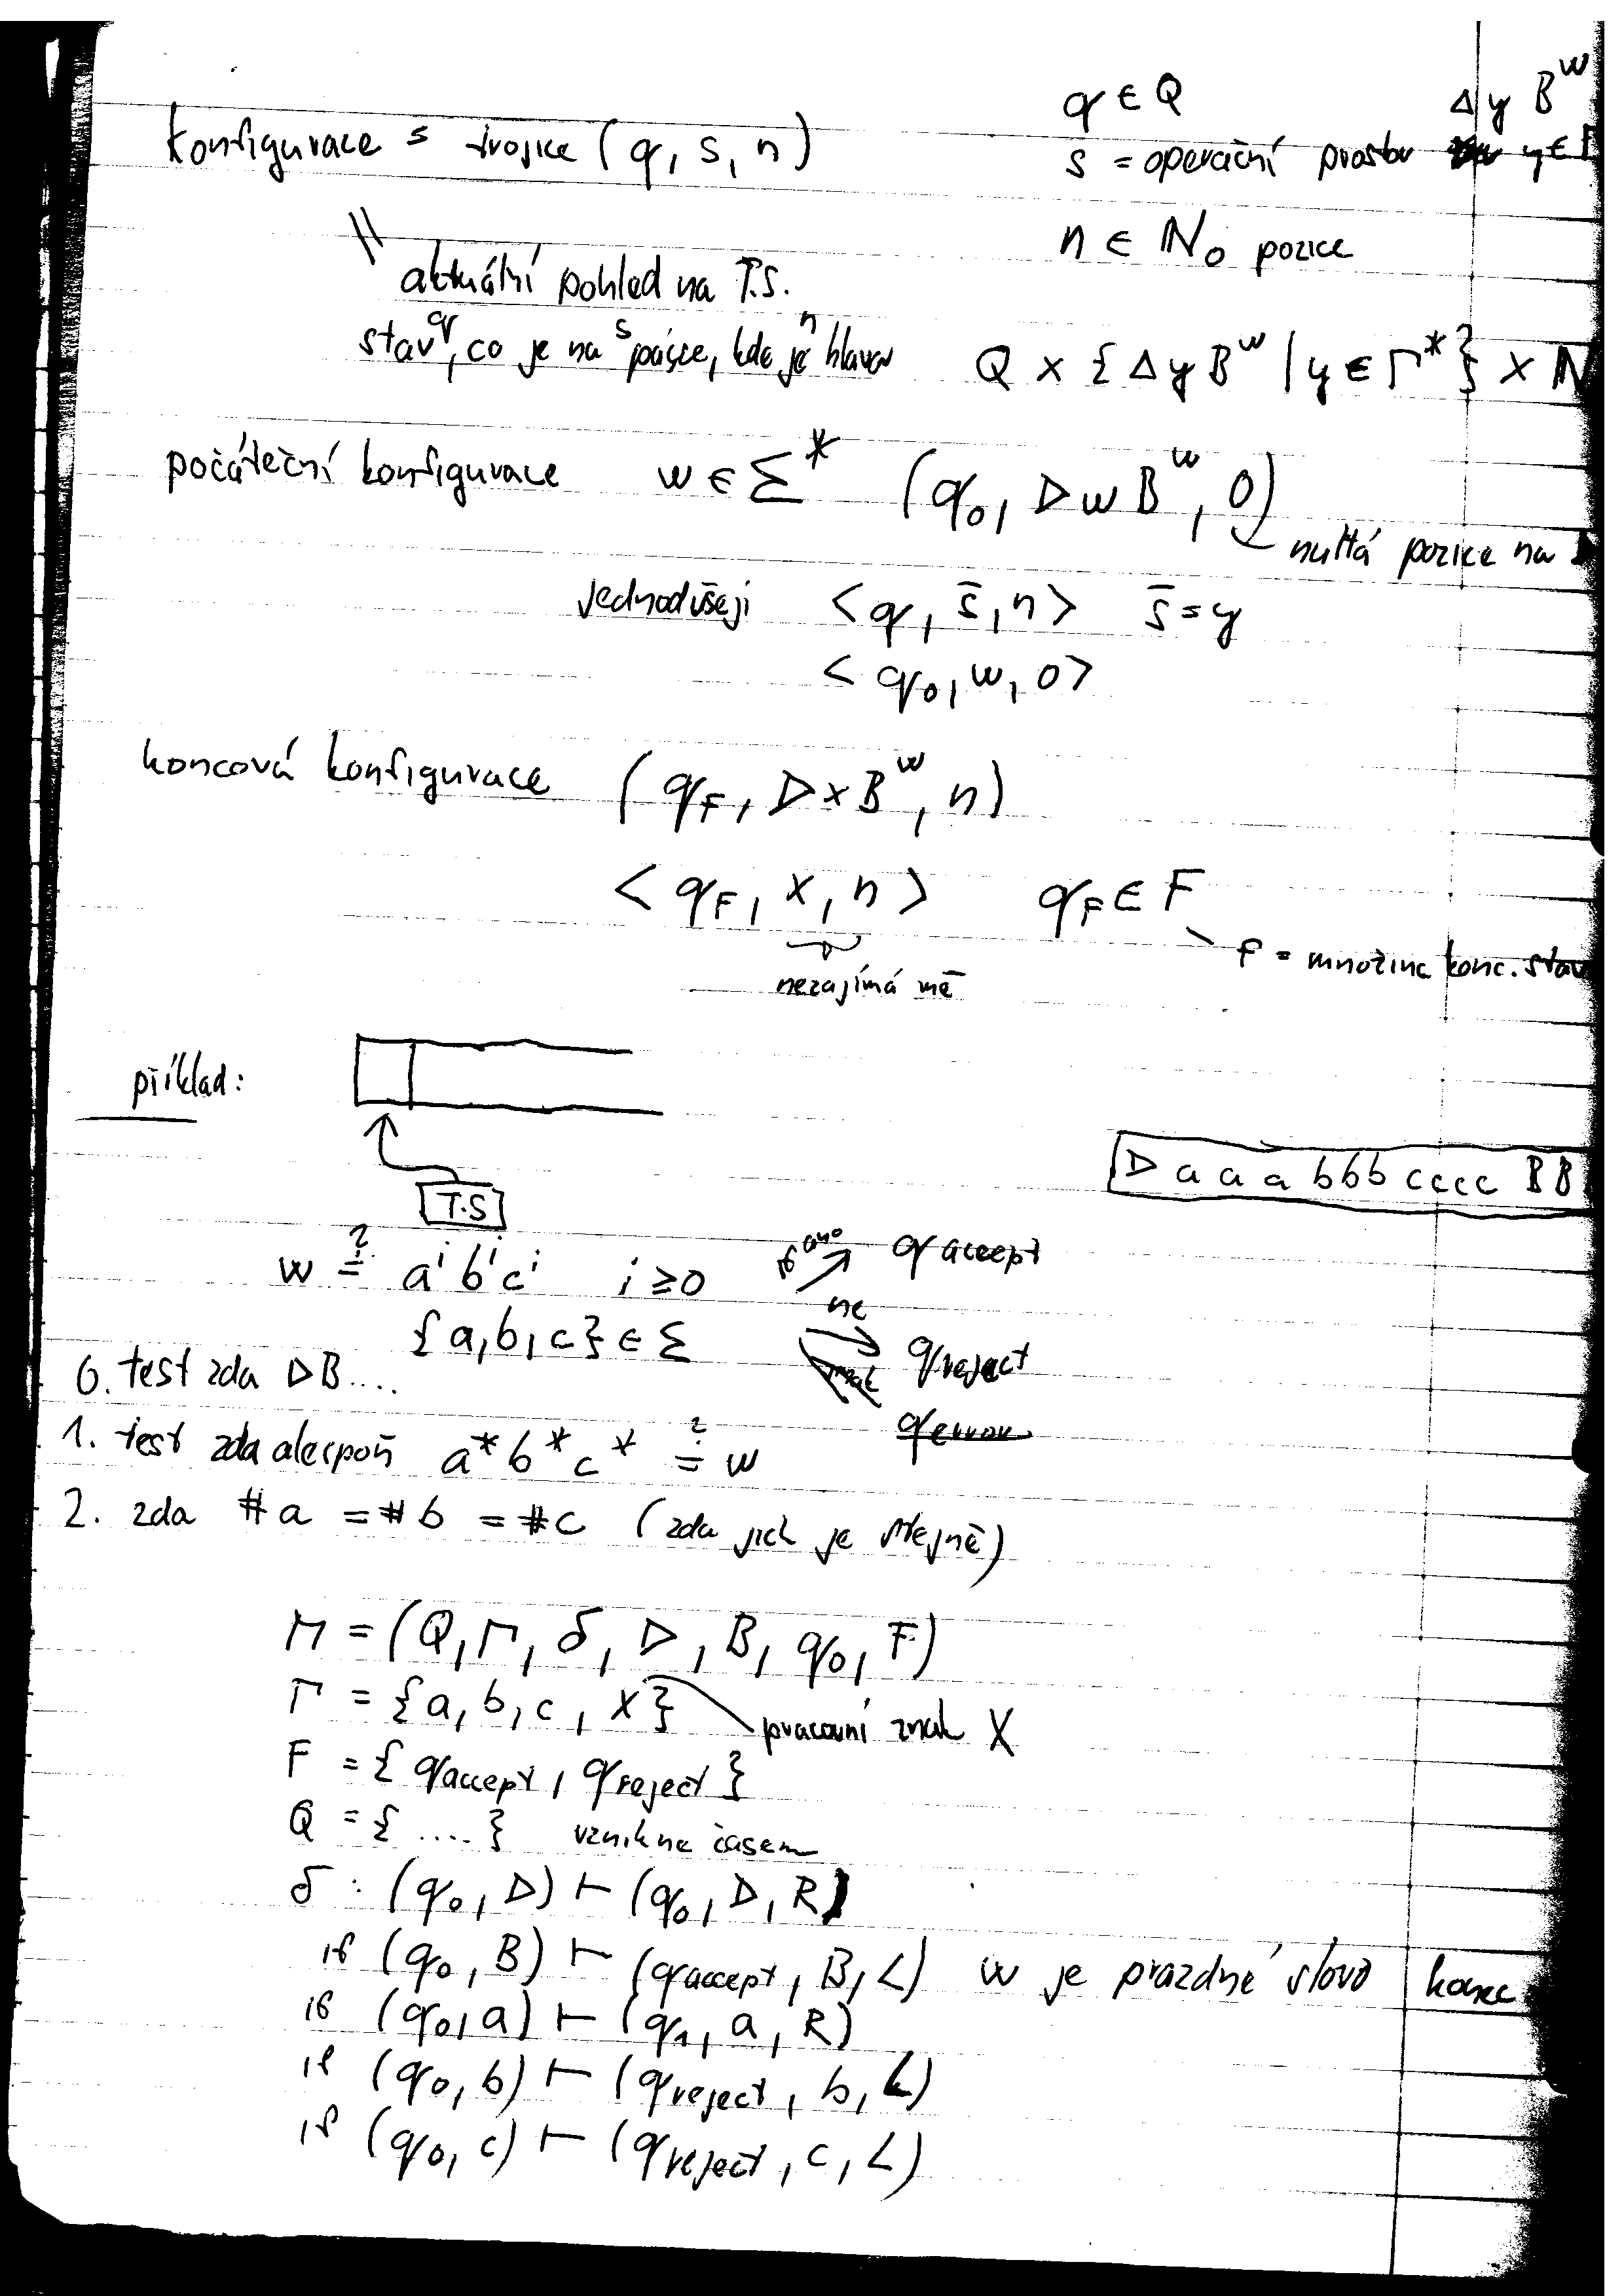 q ∈ Q
Δ y B^w
konfigurace = trojice (q, s, n)
s = operační prostor y ∈ Γ
n ∈ N₀ pozice
aktuální pohled na T.S.
stav q, co je na s pásce, kde je n hlava
Q × { Δ y B^w | y ∈ Γ* } × N
počáteční konfigurace w ∈ Σ* (q₀, ▷ w B^w, 0)
nultá pozice na
jednodušeji <q, s̄, n> s̄ = y
<q₀, w, 0>
koncová konfigurace (q_F, ▷ x B^w, n)
<q_F, x, n> q_F ∈ F
F = množina konc. stav
nezajímá mě
příklad:
▷ a a a b b b c c c c B B
T.S
w ≟ aⁱ bⁱ cⁱ i ≥ 0 ano q accept
{a, b, c} ∈ Σ ne q reject
0. test zda ▷ B ....
q error
1. test zda alespoň a* b* c* ≟ w
2. zda #a = #b = #c (zda jich je stejně)
M = (Q, Γ, δ, ▷, B, q₀, F)
Γ = {a, b, c, X} pracovní znak X
F = { q accept, q reject }
Q = { .... } vznikne časem
δ : (q₀, ▷) ⊢ (q₀, ▷, R)
if (q₀, B) ⊢ (q accept, B, L) w je prázdné slovo | konec
if (q₀, a) ⊢ (q₁, a, R)
if (q₀, b) ⊢ (q reject, b, L)
if (q₀, c) ⊢ (q reject, c, L)